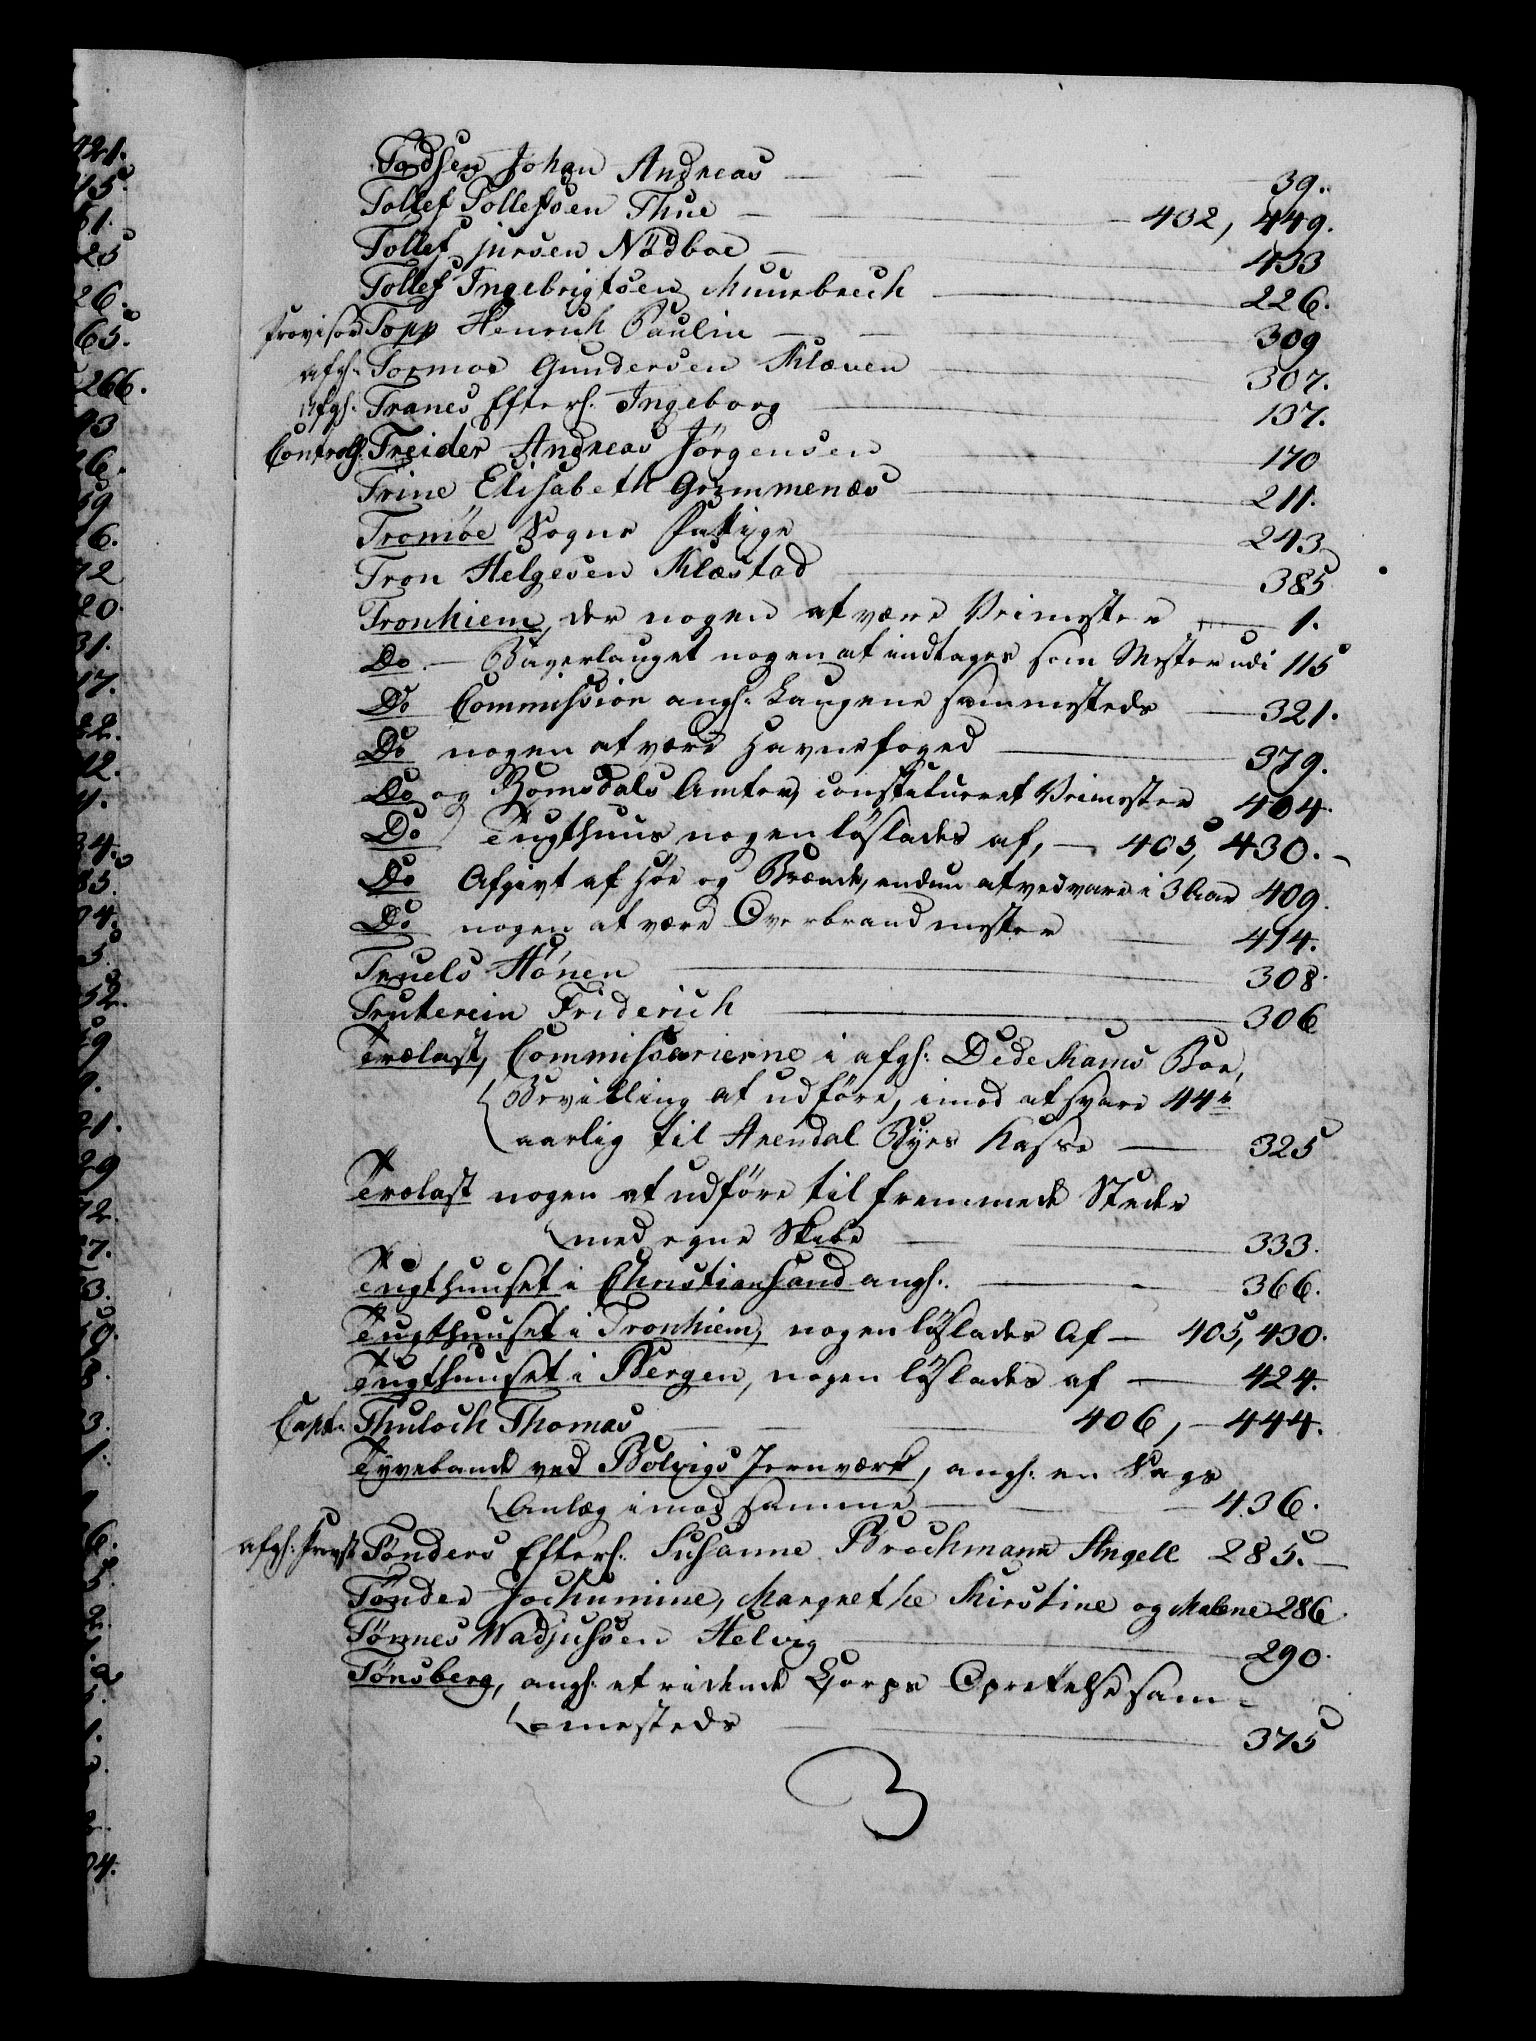 Todsen Johan Andreas — 39.
Tollef Tollefsen Thue — 432, 449.
Tollef jursen Nödboe — 433
Tollef Ingebrigtsen Muurbrech — 226.
Provisor Topp Henrich Paulin — 309
afg: Tormoe Gundersen Klæven — 307.
Afg: Tranes Efterl: Ingeborg — 137.
Controll: Treider Andreas Jörgensen — 170
Trine Elisabeth Grimmenæs — 211.
Tromöe Sogne — 243
Tron Helgesen Klæstad — 385
Tronhiem, der nogen at være Veimester — 1.
Do — Bagerlauget nogen at indtages som Mester udi 115
Do Commission angl: Laugene sammesteds — 321.
Do nogen at være Havnefoged — 379.
Do og Romsdals Amter, constitueret Veimester 404.
Do Tugthuus nogen löslades af, — 405, 430.
Do Afgivt af Höe og Brænde, endnu at vedvare i 3 Aar 409.
Do nogen at være Overbrandmester — 414.
Truels Hönen — 308.
Truterein Friderich — 306
Trælast, Commissarierne i afg: Dedekams Boe,
Bevilling at udföre, imod at svare 44 r
aarlig til Arendal Byes Kasse — 325
Trælast nogen at udföre til fremmede Steder
med egne Skibe — 333.
Tugthuuset i Christiansand angl: — 366.
Tugthuuset i Tronhiem, nogen löslades Af — 405, 430.
Tugthuuset i Bergen, nogen löslades af — 424.
Capt: Thuloch Thomas — 406, — 444.
Tyvebande ved Bolvigs Jernværk, angl: en Sags
Anlæg imod samme — 436.
afg: Provst Tönders Efterl: Susanne Brochmann Angell 285.
Tönder Jochumine, Margrethe Kirstine og Malene 286
Törmes Madjussen Helvig — 290.
Tönsberg, angl: et ridende Corps Oprettelse sam-
mesteds — 375